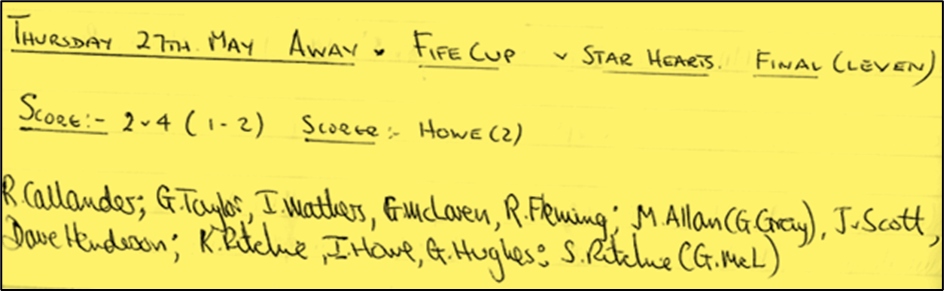 THURSDAY 27TH. MAY AWAY v FIFE CUP v STAR HEARTS. FINAL (LEVEN)
SCORE:- 2-4 (1-2) SCORER:- HOWE (2)
R.Callander; G.Taylor, I.Mathers, G.McLaren, R.Fleming; M.Allan (G.Gray), J.Scott,
Dave Henderson; K.Ritchie, I.Howe, G.Hughes; S.Ritchie (G.McL)